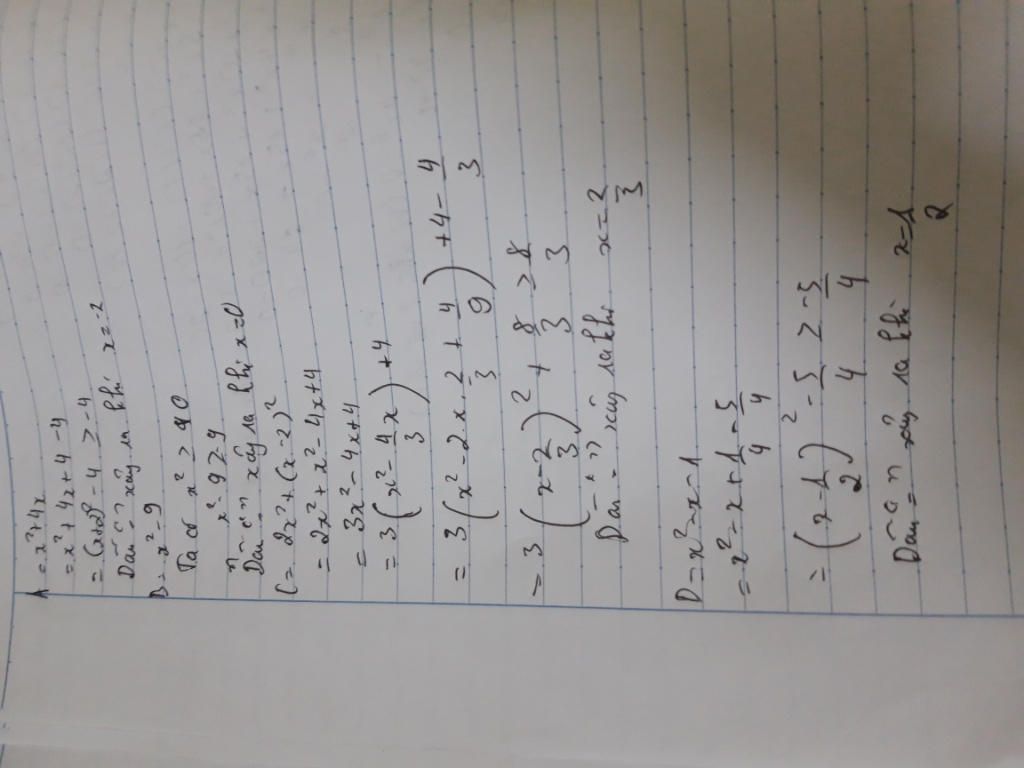 A = x² + 4x
= x² + 4x + 4 - 4
= (x+2)² - 4 ≥ -4
Dấu "=" xảy ra khi x = -2
B = x² - 9
Ta có x² ≥ 0
x² - 9 ≥ -9
Dấu "=" xảy ra khi x = 0
C = 2x² + (x-2)²
= 2x² + x² - 4x + 4
= 3x² - 4x + 4
= 3(x² - 4/3 x) + 4
= 3(x² - 2x.2/3 + 4/9) + 4 - 4/3
= 3(x - 2/3)² + 8/3 ≥ 8/3
Dấu "=" xảy ra khi x = 2/3
D = x² - x - 1
= x² - x + 1/4 - 5/4
= (x - 1/2)² - 5/4 ≥ -5/4
Dấu "=" xảy ra khi x = 1/2